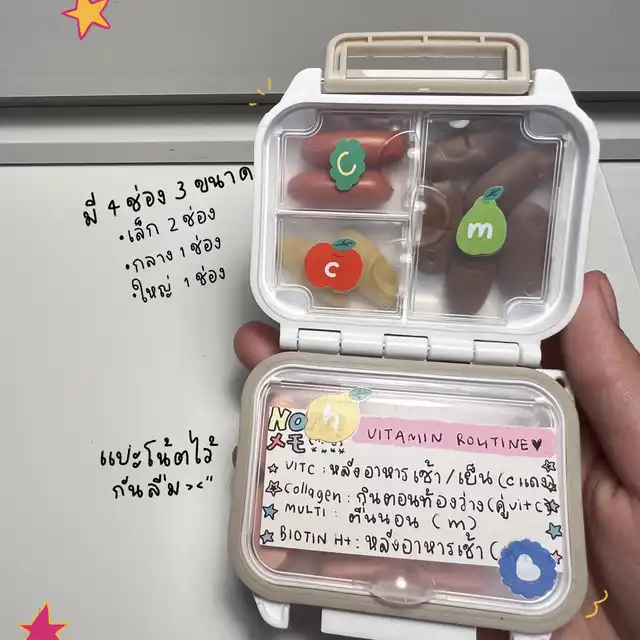 มี 4 ช่อง 3 ขนาด
•เล็ก 2 ช่อง
•กลาง 1 ช่อง
•ใหญ่ 1 ช่อง
C
c
m
แปะโน้ตไว้
กันลืม><"
h
メモ
VITAMIN ROUTINE♥
VITC : หลังอาหารเช้า/เย็น (c แดง)
Collagen : กินตอนท้องว่าง (คู่ vit c)
MULTI : ตื่นนอน (m)
BIOTIN H+ : หลังอาหารเช้า (